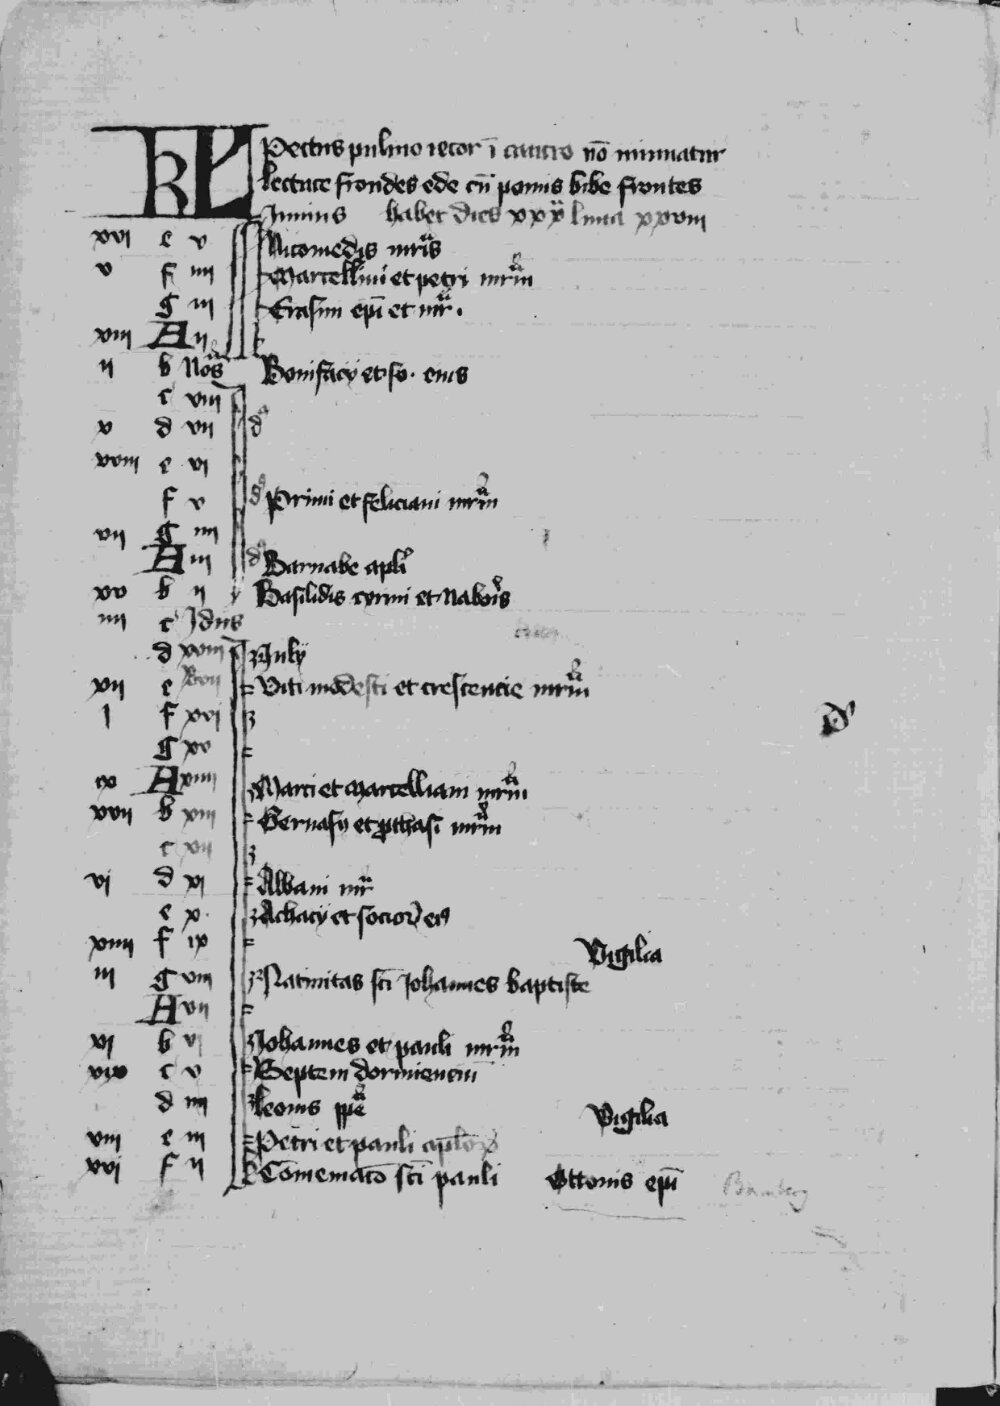 KL Pectus pulmo iecor ī cancro nō minuatur
lectuce frondes ede cū pomis bibe frontes
Junius habet dies xxx luna xxviiii
xvi e v Nicomedis mris
v f iiii Marcellini et petri mrm
g iii Erasmi epi et mr.
xiii A ii
ii b Nos Bonifacij et so. eius
c viii
x d vii
xviii e vi
f v Primi et feliciani mrm
vii g iiii
A iii Barnabe apli
xv b ii Basilidis cyrini et Naboris
iiii c Idus
d xviii July
xii e xvii Viti modesti et crescencie mrm
I f xvi
g xv
ix A xiiii Marci et marcelliani mrm
xvii b xiii Geruasij et pthasi mrm
c xii
vi d xi Albani mr
e x. Achacij et socior ei9
xiiii f ix Vigilia
iii g viii Natiuitas sci Johannes baptiste
A vii
xi b vi Johannes et pauli mrm
xix c v Septem dormiencium
d iiii leonis ppe Vigilia
viii e iii Petri et pauli aplor
xvi f ii Comemaco sci pauli Ottonis epi Bamberg